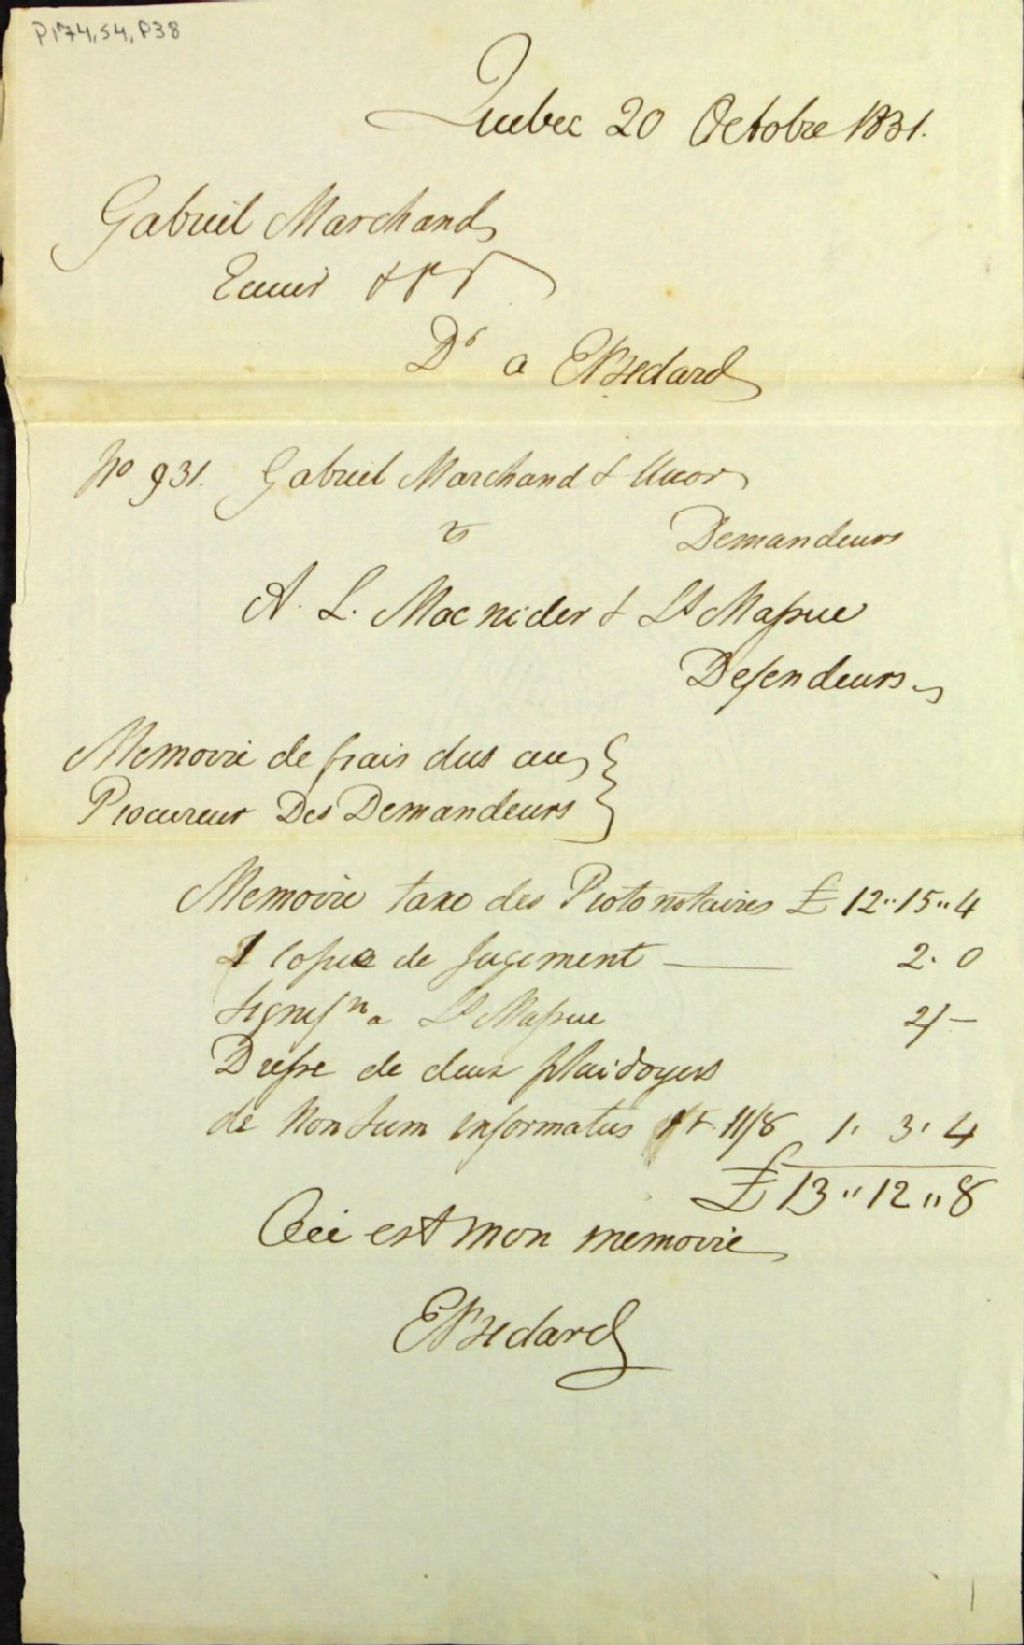 P174,S4,P38
Quebec 20 Octobre 1831.
Gabriel Marchand
Ecuier
Dr a E Bedard
No 931. Gabriel Marchand & Uxor
vs Demandeurs
A. L. Macnider & Ls Massue
Defendeurs
Memoire de frais dus au
Procureur Des Demandeurs
Memoire taxe des Protonotaires £ 12..15..4
1 Copie de Jugement 2. 0
Signifn a Ls Massue 2/-
Dresse de deux plaidoyers
de Non Sum informatus 11/8 1. 3. 4
£ 13 " 12 " 8
Ceci est mon memoire
E Bedard